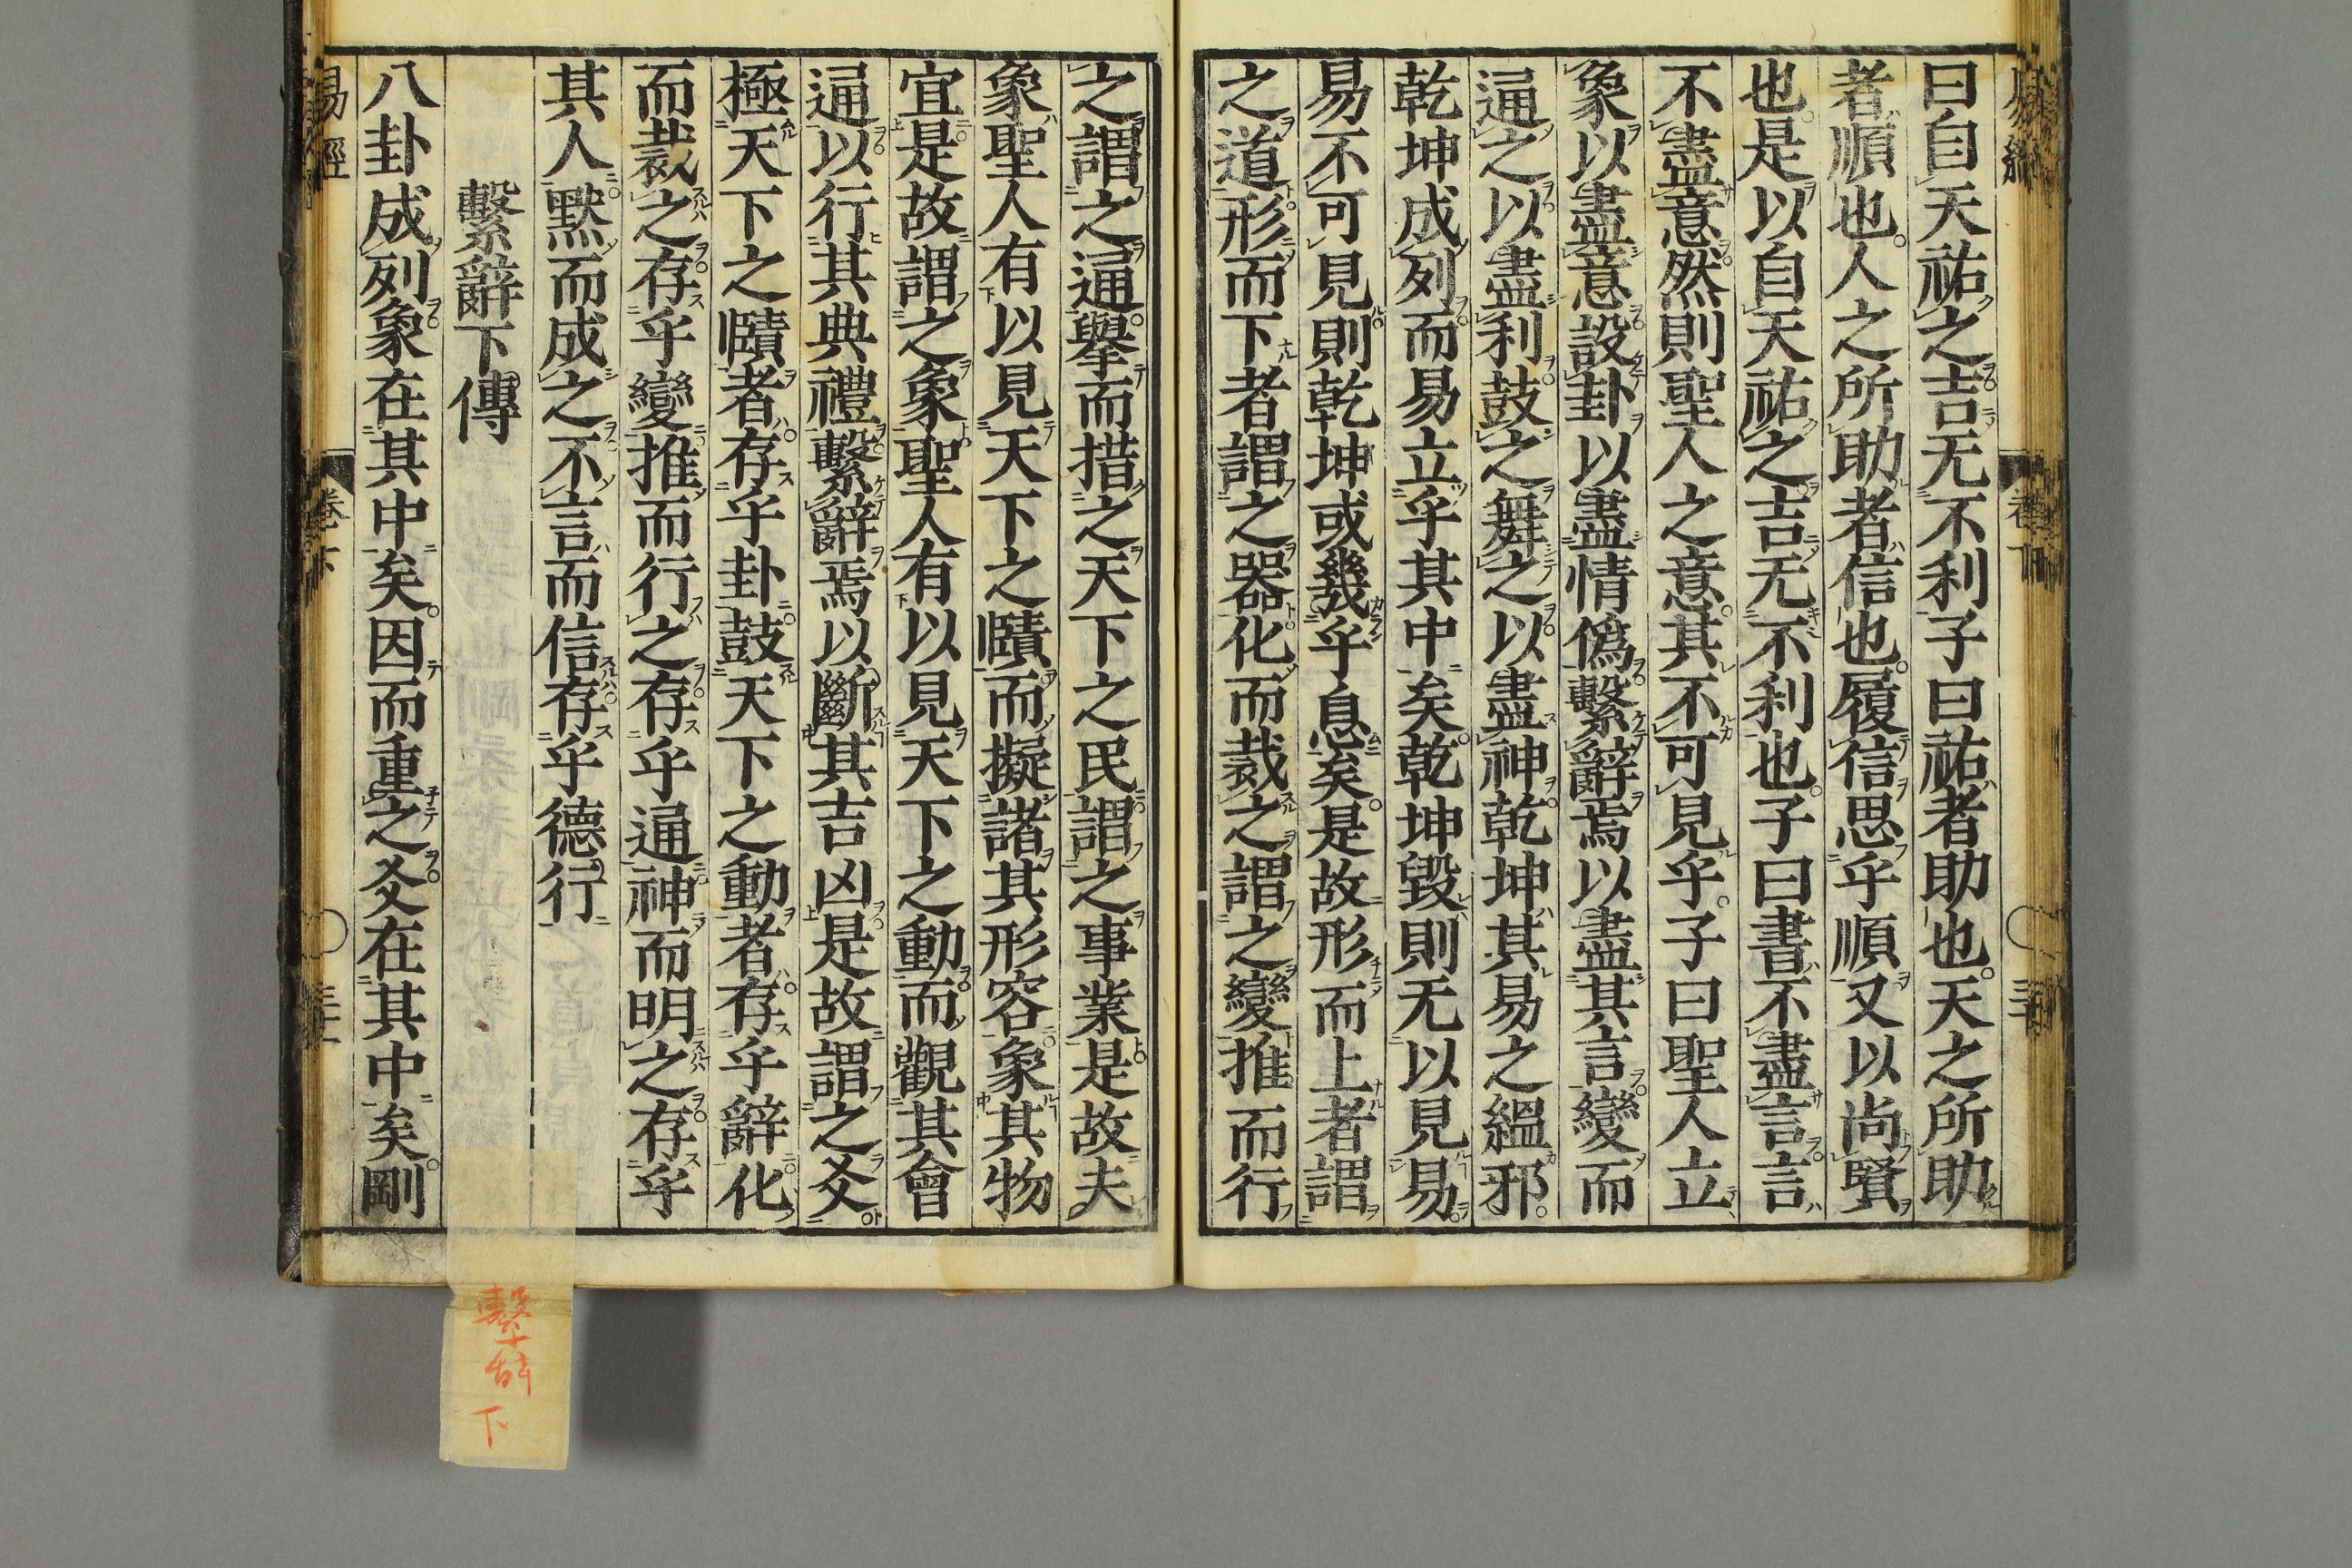 曰自天祐之吉无不利子曰祐者助也天之所助
者順也人之所助者信也履信思乎順又以尚賢
也是以自天祐之吉无不利也子曰書不盡言言
不盡意然則聖人之意其不可見乎子曰聖人立
象以盡意設卦以盡情僞繫辭焉以盡其言變而
通之以盡利鼓之舞之以盡神乾坤其易之縕邪
乾坤成列而易立乎其中矣乾坤毀則无以見易
易不可見則乾坤或幾乎息矣是故形而上者謂
之道形而下者謂之器化而裁之謂之變推而行
之謂之通舉而措之天下之民謂之事業是故夫
象聖人有以見天下之賾而擬諸其形容象其物
宜是故謂之象聖人有以見天下之動而觀其會
通以行其典禮繫辭焉以斷其吉凶是故謂之爻
極天下之賾者存乎卦鼓天下之動者存乎辭化
而裁之存乎變推而行之存乎通神而明之存乎
其人默而成之不言而信存乎德行
繫辭下傳
八卦成列象在其中矣因而重之爻在其中矣剛
易經 卷下
繫辞下